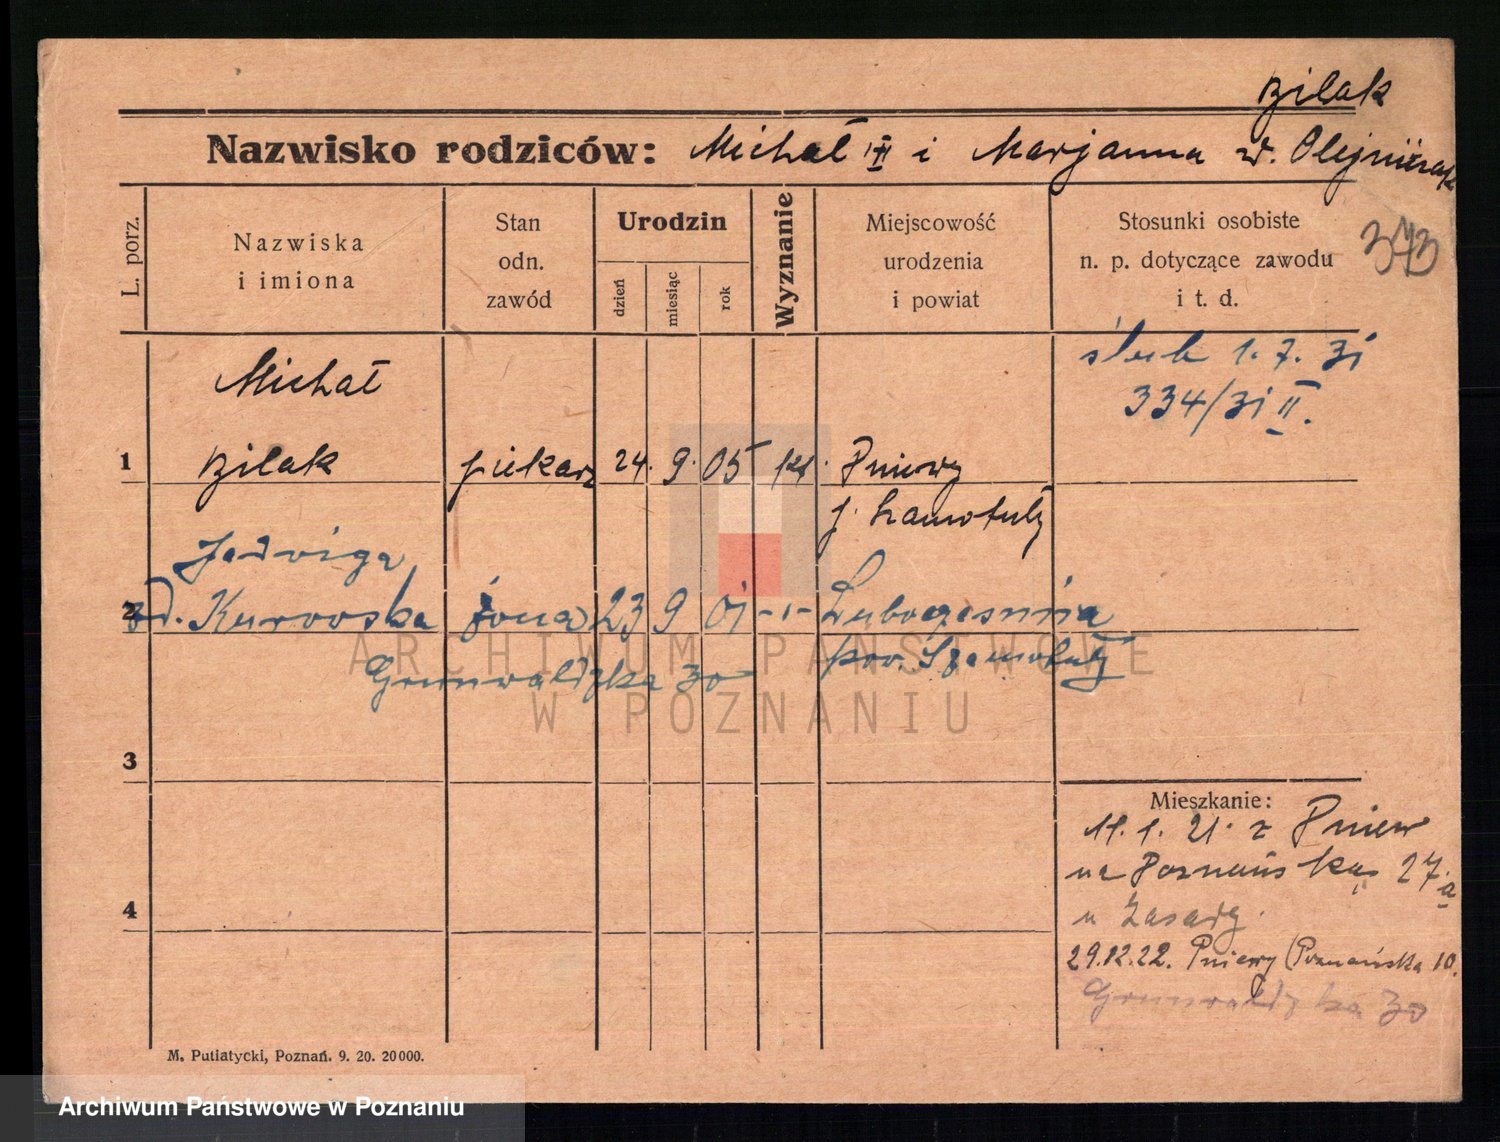 Bilak
Nazwisko rodziców: Michał i Marjanna z d. Olejniczak
L. porz.
Nazwiska
i imiona
Stan
odn.
zawód
Urodzin
dzień
miesiąc
rok
Wyznanie
Miejscowość
urodzenia
i powiat
Stosunki osobiste
n. p. dotyczące zawodu
i t. d.
373
ślub 1. 7. 31
334/31 II.
Michał
1 Bilak piekarz 24. 9. 05 kt. Pniewy
p. Szamotuły
Jadwiga
2 zd. Kurowska żona 23 9 01 -"- Lubocześnica
pow. Szamotuły
Grunwaldzka 30
3
4
Mieszkanie:
11. 1. 21. z Pniew
na Poznańską 27a
u Zasady.
29.12.22. Pniewy (Poznańska 10.
Grunwaldzka 30
M. Putiatycki, Poznań. 9. 20. 20000.
ARCHIWUM PAŃSTWOWE
W POZNANIU
Archiwum Państwowe w Poznaniu